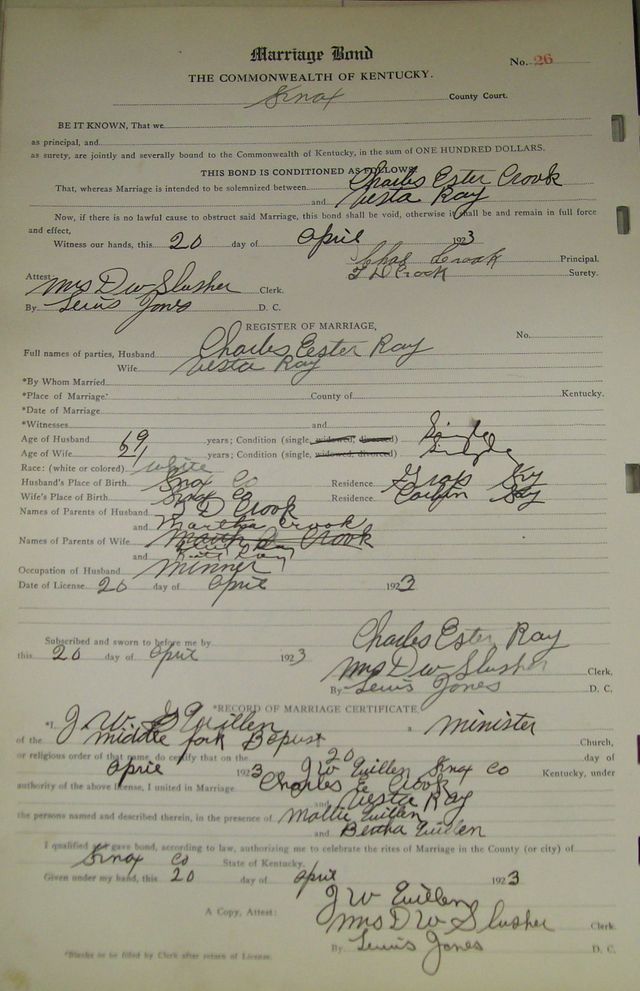 Marriage Bond
No. 26
THE COMMONWEALTH OF KENTUCKY.
Knox County Court.
BE IT KNOWN, That we
as principal, and
as surety, are jointly and severally bound to the Commonwealth of Kentucky, in the sum of ONE HUNDRED DOLLARS.
THIS BOND IS CONDITIONED AS FOLLOWS
That, whereas Marriage is intended to be solemnized between Charles Ester Crook
and Vesta Ray
Now, if there is no lawful cause to obstruct said Marriage, this bond shall be void, otherwise it shall be and remain in full force
and effect,
Witness our hands, this 20 day of April 1923
Chas Crook Principal.
T D Crook Surety.
Attest:
Mrs D W Slusher Clerk.
By Lewis Jones D. C.
REGISTER OF MARRIAGE,
No.
Full names of parties, Husband Charles Eester Ray
Wife Vesta Ray
*By Whom Married
*Place of Marriage: County of Kentucky.
*Date of Marriage
*Witnesses and
Age of Husband years; Condition (single, widowed, divorced) Single
Age of Wife 21 years; Condition (single, widowed, divorced) Single
Race: (white or colored) white
Husband's Place of Birth Knox Co Residence Grays Ky
Wife's Place of Birth Knox Co Residence Corbin Ky
Names of Parents of Husband T D Crook
and Martha Crook
Names of Parents of Wife Crook
and Ray
Occupation of Husband Minner
Date of License 20 day of April 1923
Subscribed and sworn to before me by Charles Ester Ray
this 20 day of April 1923 Mrs D W Slusher Clerk,
By Lewis Jones D. C.
*RECORD OF MARRIAGE CERTIFICATE
*I, J W Quillen a Minister
of the Middle fork Bapust Church,
or religious order of that name, do certify that on the 20 day of
April 1923 J W Quillen Knox Co Kentucky, under
authority of the above license, I united in Marriage Charles E Crook
and Vesta Ray
the persons named and described therein, in the presence of Mollie Quillen
and Bertha Quillen
I qualified and gave bond, according to law, authorizing me to celebrate the rites of Marriage in the County (or city) of
Knox Co State of Kentucky.
Given under my hand, this 20 day of April 1923
J W Quillen
A Copy, Attest: Mrs D W Slusher Clerk
By Lewis Jones D. C.
*Blanks to be filled by Clerk after return of License.